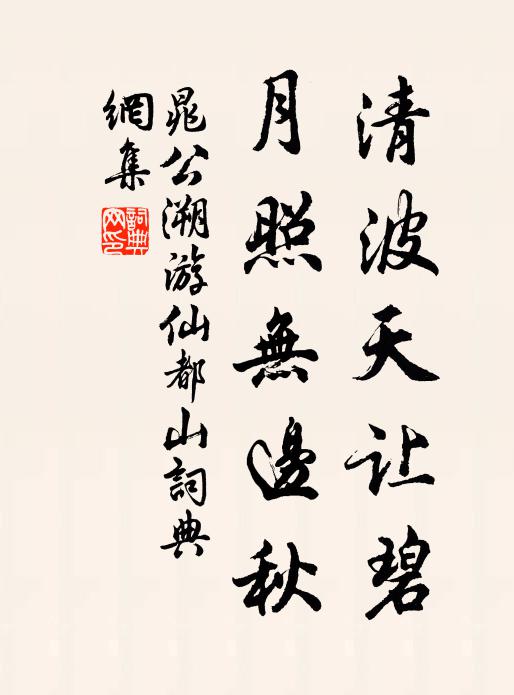 清波天让碧
月照無邊秋
晁公溯游仙都山詞典
網集
詞典網印